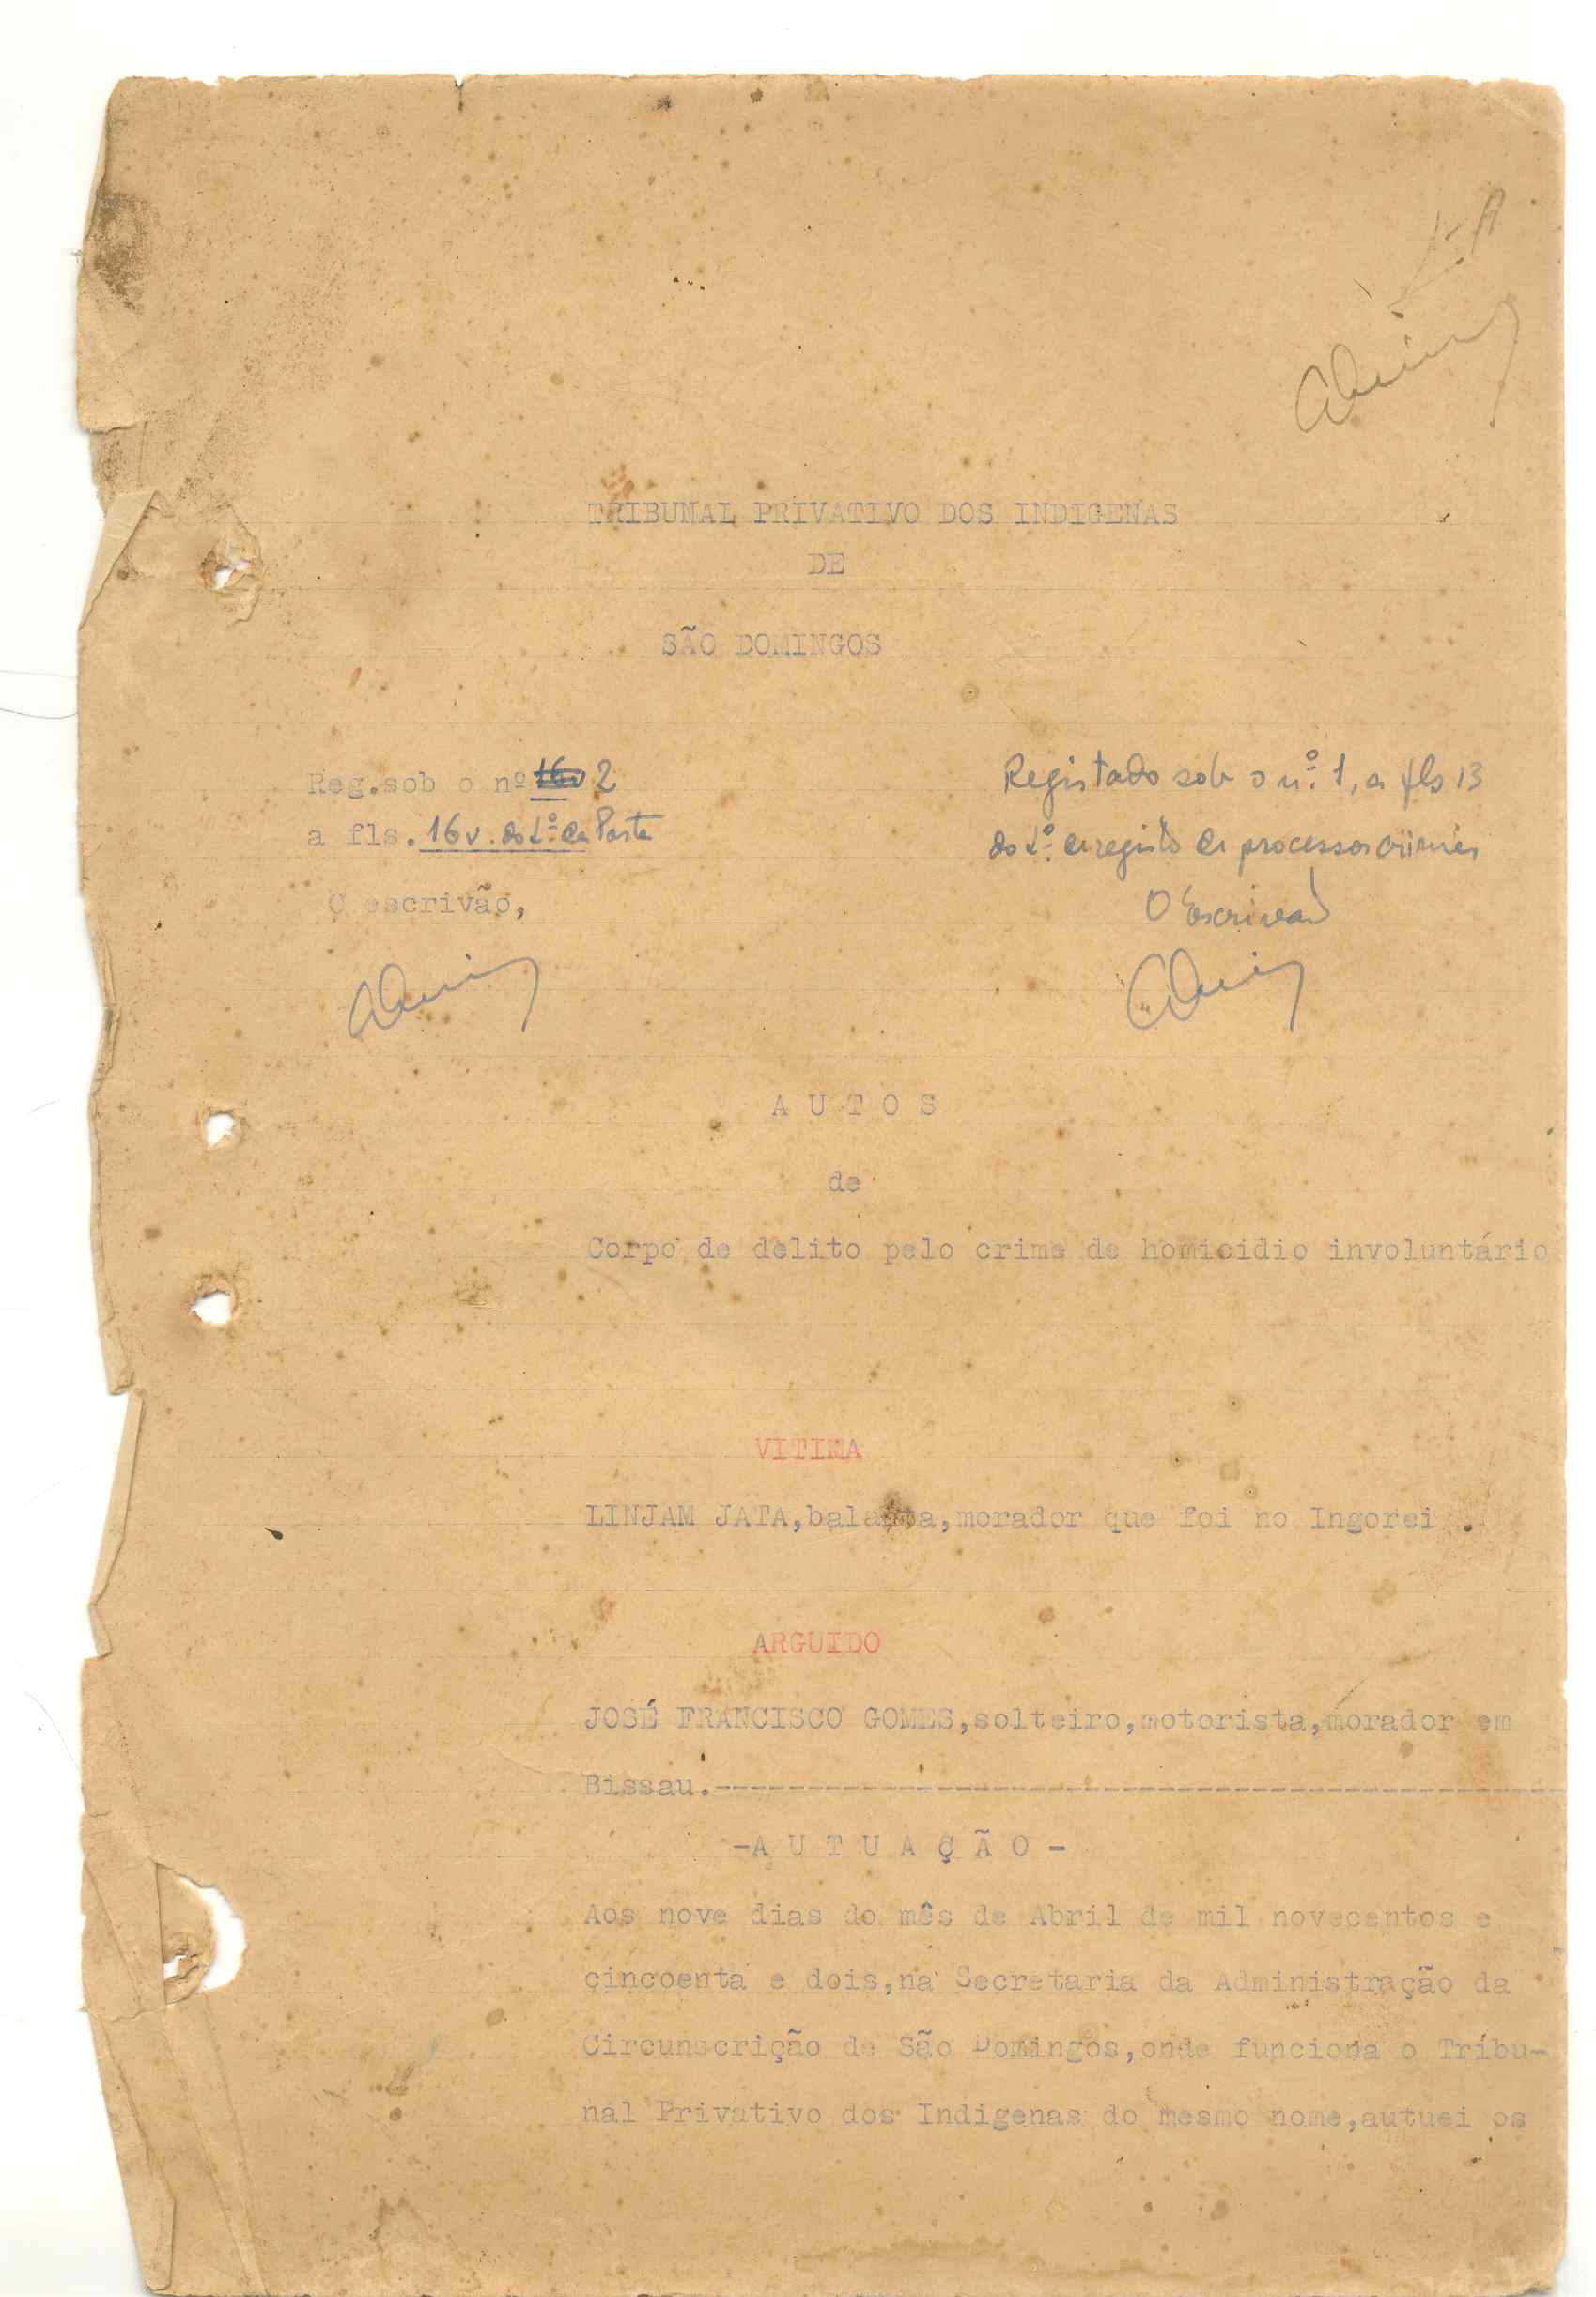 TRIBUNAL PRIVATIVO DOS INDIGENAS
DE
SÃO DOMINGOS
Reg.sob o nº 16v 2
a fls. 16v. do Lº: da Porta
O escrivão,
Registado sob o nº. 1, a fls 13
do Lº: de registo de processos crimes
O Escrivão
A U T O S
de
Corpo de delito pelo crime de homicidio involuntário
VITIMA
LINJAM JATA,balanta,morador que foi no Ingorei .
ARGUIDO
JOSÉ FRANCISCO GOMES,solteiro,motorista,morador em
Bissau.----------------------------------------------
-A U T U A Ç Ã O -
Aos nove dias do mês de Abril de mil novecentos e
çincoenta e dois,na Secretaria da Administração da
Circunscrição de São Domingos,onde funciona o Tríbu-
nal Privativo dos Indigenas do mesmo nome,autuei os